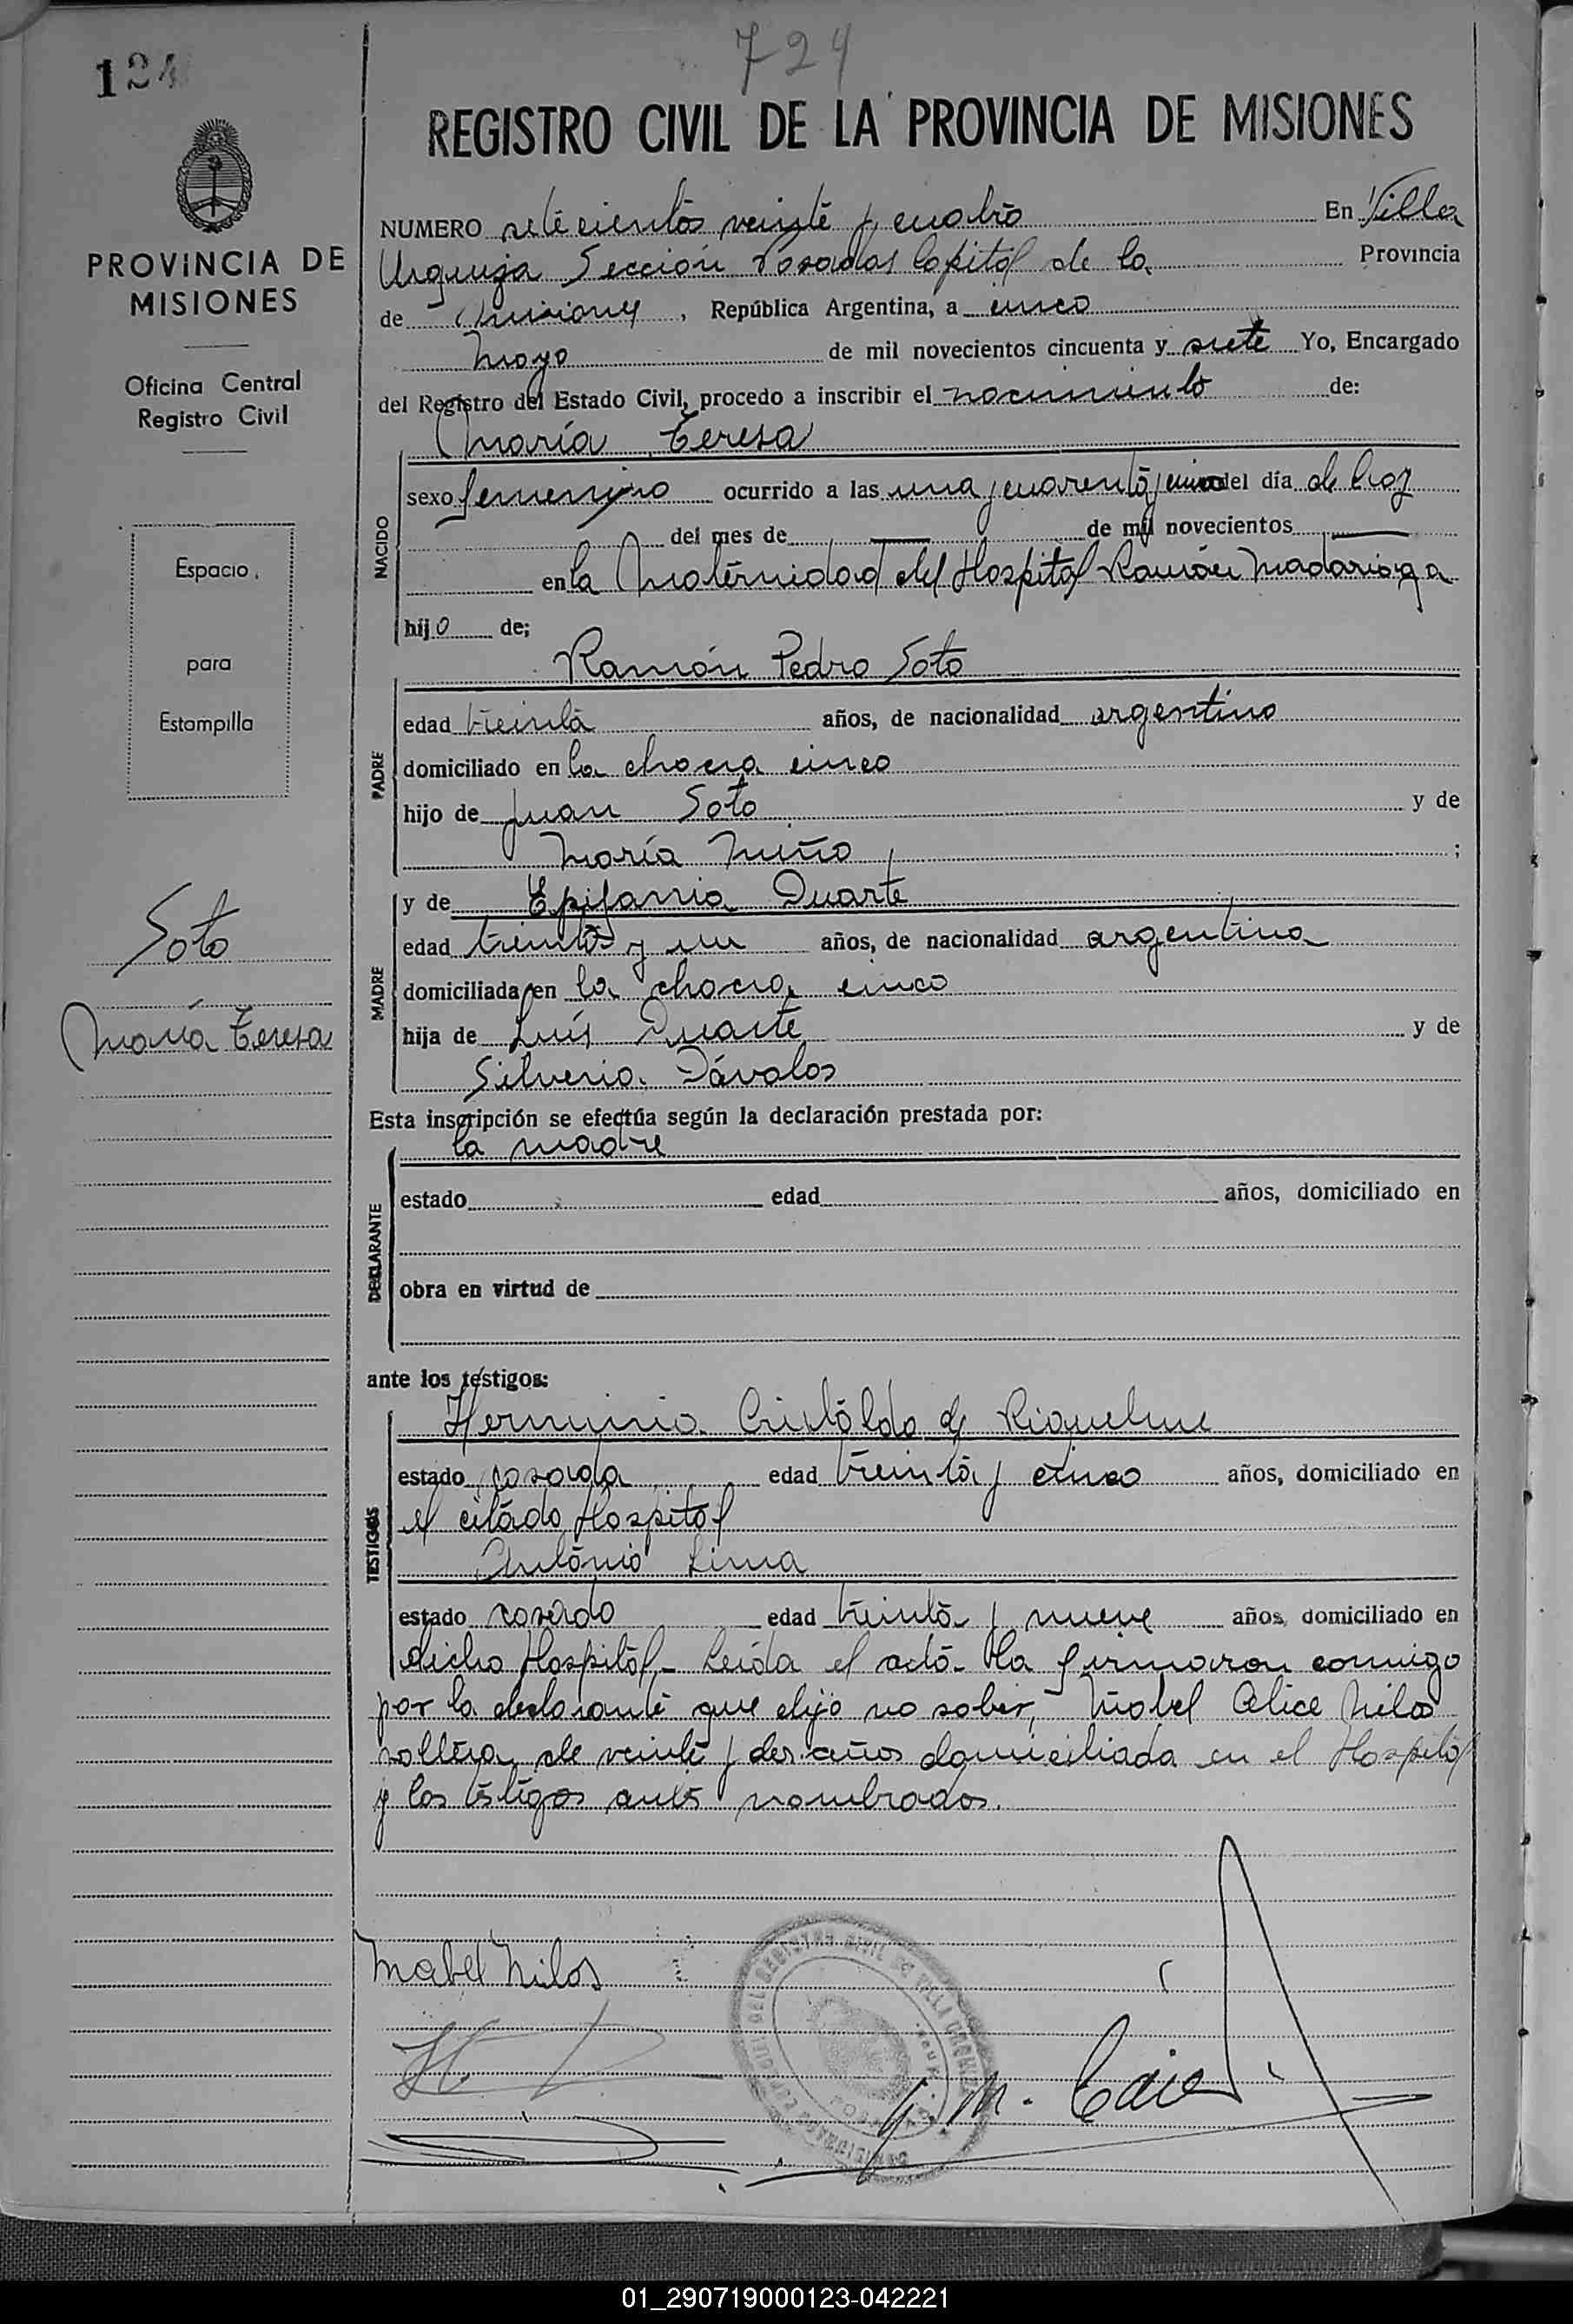 124
724
REGISTRO CIVIL DE LA PROVINCIA DE MISIONES
PROVINCIA DE
MISIONES
Oficina Central
Registro Civil
Espacio
para
Estampilla
Soto
María Teresa
NUMERO setecientos veinte y cuatro En Villa
Urquiza Sección Posadas Capital de la Provincia
de Misiones, República Argentina, a cinco
Mayo de mil novecientos cincuenta y siete Yo, Encargado
del Registro del Estado Civil, procedo a inscribir el nacimiento de:
María Teresa
NACIDO
sexo femenino ocurrido a las una y cuarenta y cinco del día de hoy
del mes de — de mil novecientos —
en la Maternidad del Hospital Ramón Madariaga
hijo de;
Ramón Pedro Soto
PADRE
edad treinta años, de nacionalidad argentino
domiciliado en la chacra cinco
hijo de Juan Soto y de
María Miño ;
MADRE
y de Epifania Duarte
edad treinta y un años, de nacionalidad argentina
domiciliada en la chacra cinco
hija de Luís Duarte y de
Silveria Dávalos
Esta inscripción se efectúa según la declaración prestada por:
la madre
DECLARANTE
estado edad años, domiciliado en
obra en virtud de
ante los testigos:
Herminia Cristaldo de Riquelme
TESTIGOS
estado casada edad treinta y cinco años, domiciliado en
el citado Hospital
Antonio Lima
estado casado edad treinta y nueve años, domiciliado en
dicho Hospital.- Leída el acta la firmaron conmigo
por la declarante que dijo no saber, Mabel Alice Milos
soltera, de veinte y dos años domiciliada en el Hospital
y los testigos antes nombrados.
Mabel Milos
01_290719000123-042221